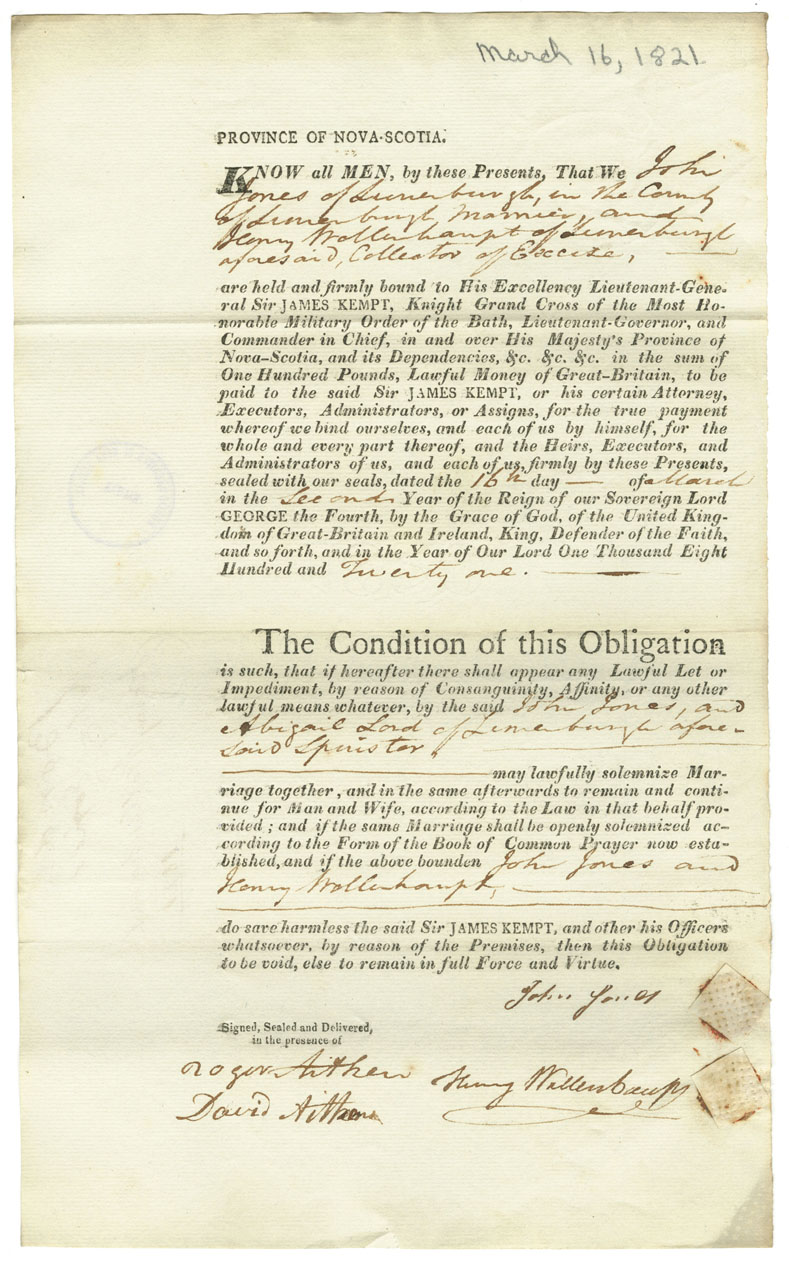 March 16, 1821
PROVINCE OF NOVA-SCOTIA.
KNOW all MEN, by these Presents, That We John
Jones of Lunenburgh, in the County
of Lunenburgh, Marrier, and
Henry Wollenhaupt of Lunenburgh
aforesaid, Collector of Excise,
are held and firmly bound to His Excellency Lieutenant-Gene-
ral Sir JAMES KEMPT, Knight Grand Cross of the Most Ho-
norable Military Order of the Bath, Lieutenant-Governor, and
Commander in Chief, in and over His Majesty's Province of
Nova-Scotia, and its Dependencies, &c. &c. &c. in the sum of
One Hundred Pounds, Lawful Money of Great-Britain, to be
paid to the said Sir JAMES KEMPT, or his certain Attorney,
Executors, Administrators, or Assigns, for the true payment
whereof we bind ourselves, and each of us by himself, for the
whole and every part thereof, and the Heirs, Executors, and
Administrators of us, and each of us, firmly by these Presents,
sealed with our seals, dated the 16th day — of March
in the Second Year of the Reign of our Sovereign Lord
GEORGE the Fourth, by the Grace of God, of the United King-
dom of Great-Britain and Ireland, King, Defender of the Faith,
and so forth, and in the Year of Our Lord One Thousand Eight
Hundred and Twenty one.
The Condition of this Obligation
is such, that if hereafter there shall appear any Lawful Let or
Impediment, by reason of Consanguinity, Affinity, or any other
lawful means whatever, by the said John Jones, and
Abigail Lord of Lunenburgh afore-
said Spinster,
may lawfully solemnize Mar-
riage together, and in the same afterwards to remain and conti-
nue for Man and Wife, according to the Law in that behalf pro-
vided; and if the same Marriage shall be openly solemnized ac-
cording to the Form of the Book of Common Prayer now esta-
blished, and if the above bounden John Jones and
Henry Wollenhaupt,
do save harmless the said Sir JAMES KEMPT, and other his Officers
whatsoever, by reason of the Premises, then this Obligation
to be void, else to remain in full Force and Virtue.
John Jones
Signed, Sealed and Delivered,
in the presence of
Roger Aitken
Henry Wollenhaupt
David Aitken